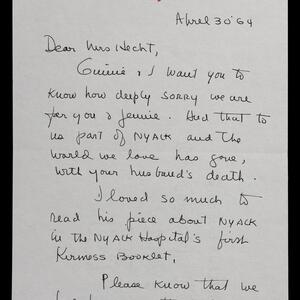 April 30 '64
Dear Mrs Hecht,
Ginnie & I want you to
know how deeply sorry we are
for you & Jennie. And that to
us part of NYACK and the
world we love has gone,
with your husband's death.
I loved so much to
read his piece about NYACK
in the NYACK Hospital's first
Kirmess Booklet,
Please know that we